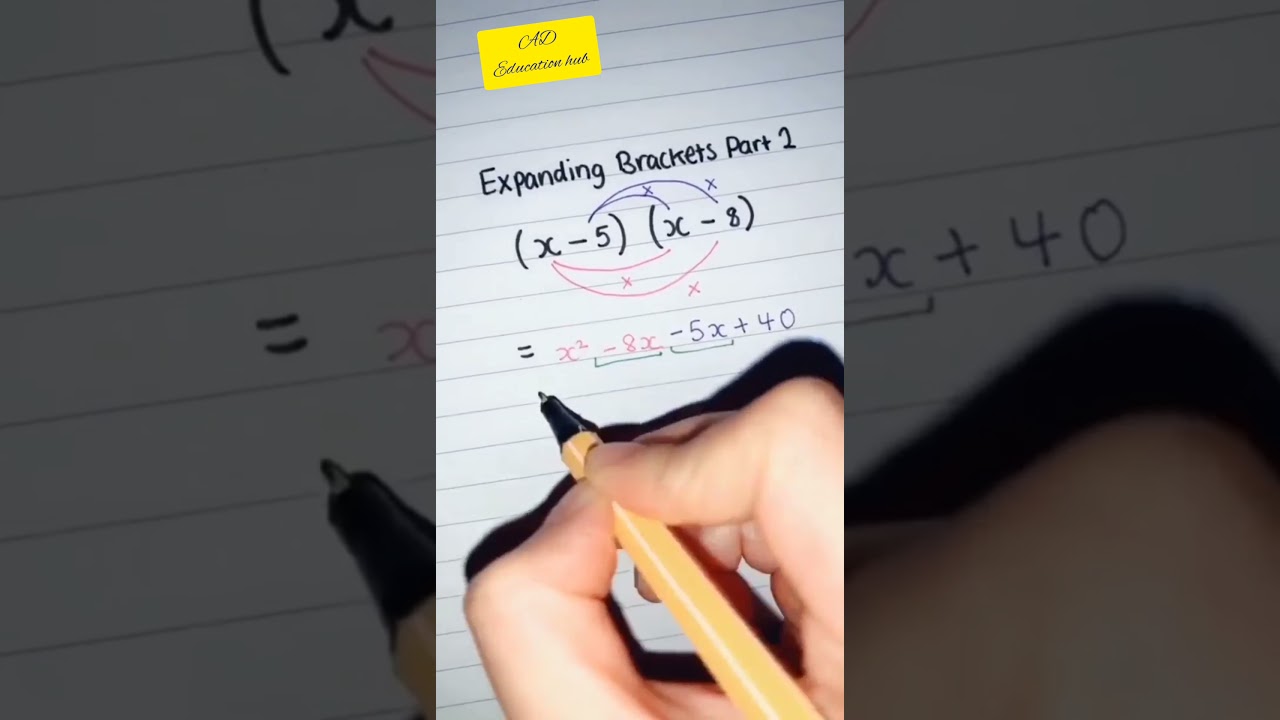 AD
Education hub
Expanding Brackets Part 2
x x
(x - 5) (x - 8)
x x
= x² - 8x - 5x + 40
(x
= x
x + 40